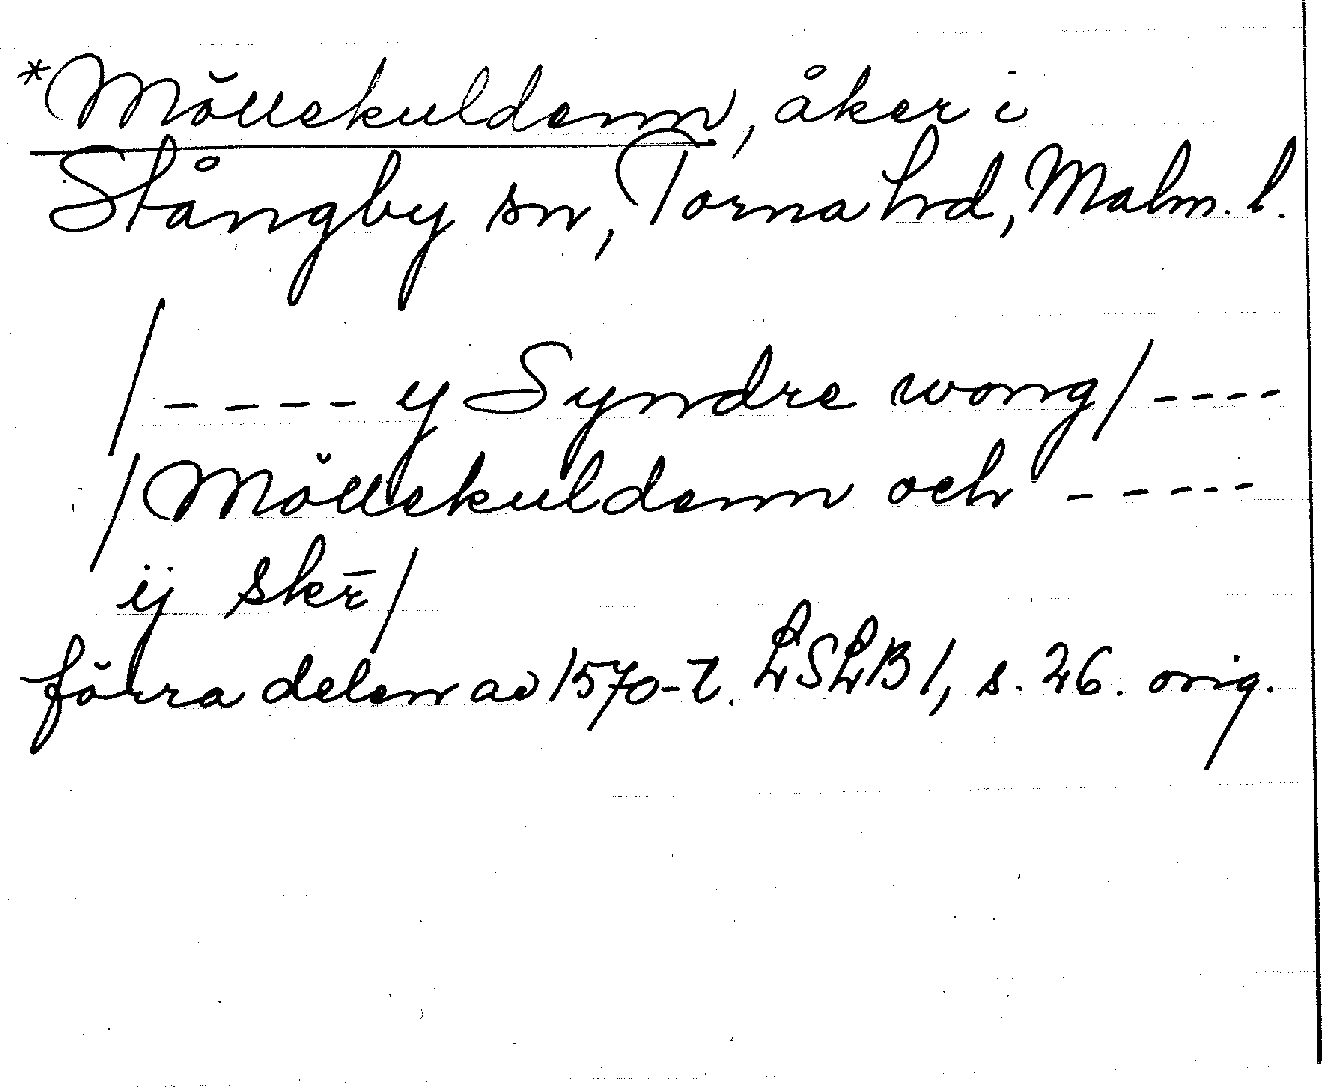 *Möllekuldenn, åker i
Stångby sn, Torna hd, Malm. l.
/---- y Syndre wong/ ----
/Möllekuldenn och -----
ij skr̄/
förra delen av 1570-t. LSLB 1, s. 26. orig.